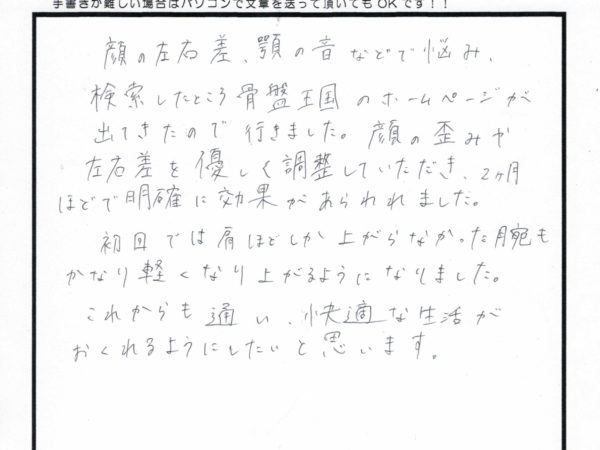 手書きが難しい場合はパソコンで文章を送って頂いてもOKです！！
顔の左右差、顎の音などで悩み、
検索したところ骨盤王国のホームページが
出てきたので行きました。顔の歪みや
左右差を優しく調整していただき、2ヶ月
ほどで明確に効果があられれました。
初回では肩ほどしか上がらなかった腕も
かなり軽くなり上がるようになりました。
これからも通い、快適な生活が
おくれるようにしたいと思います。